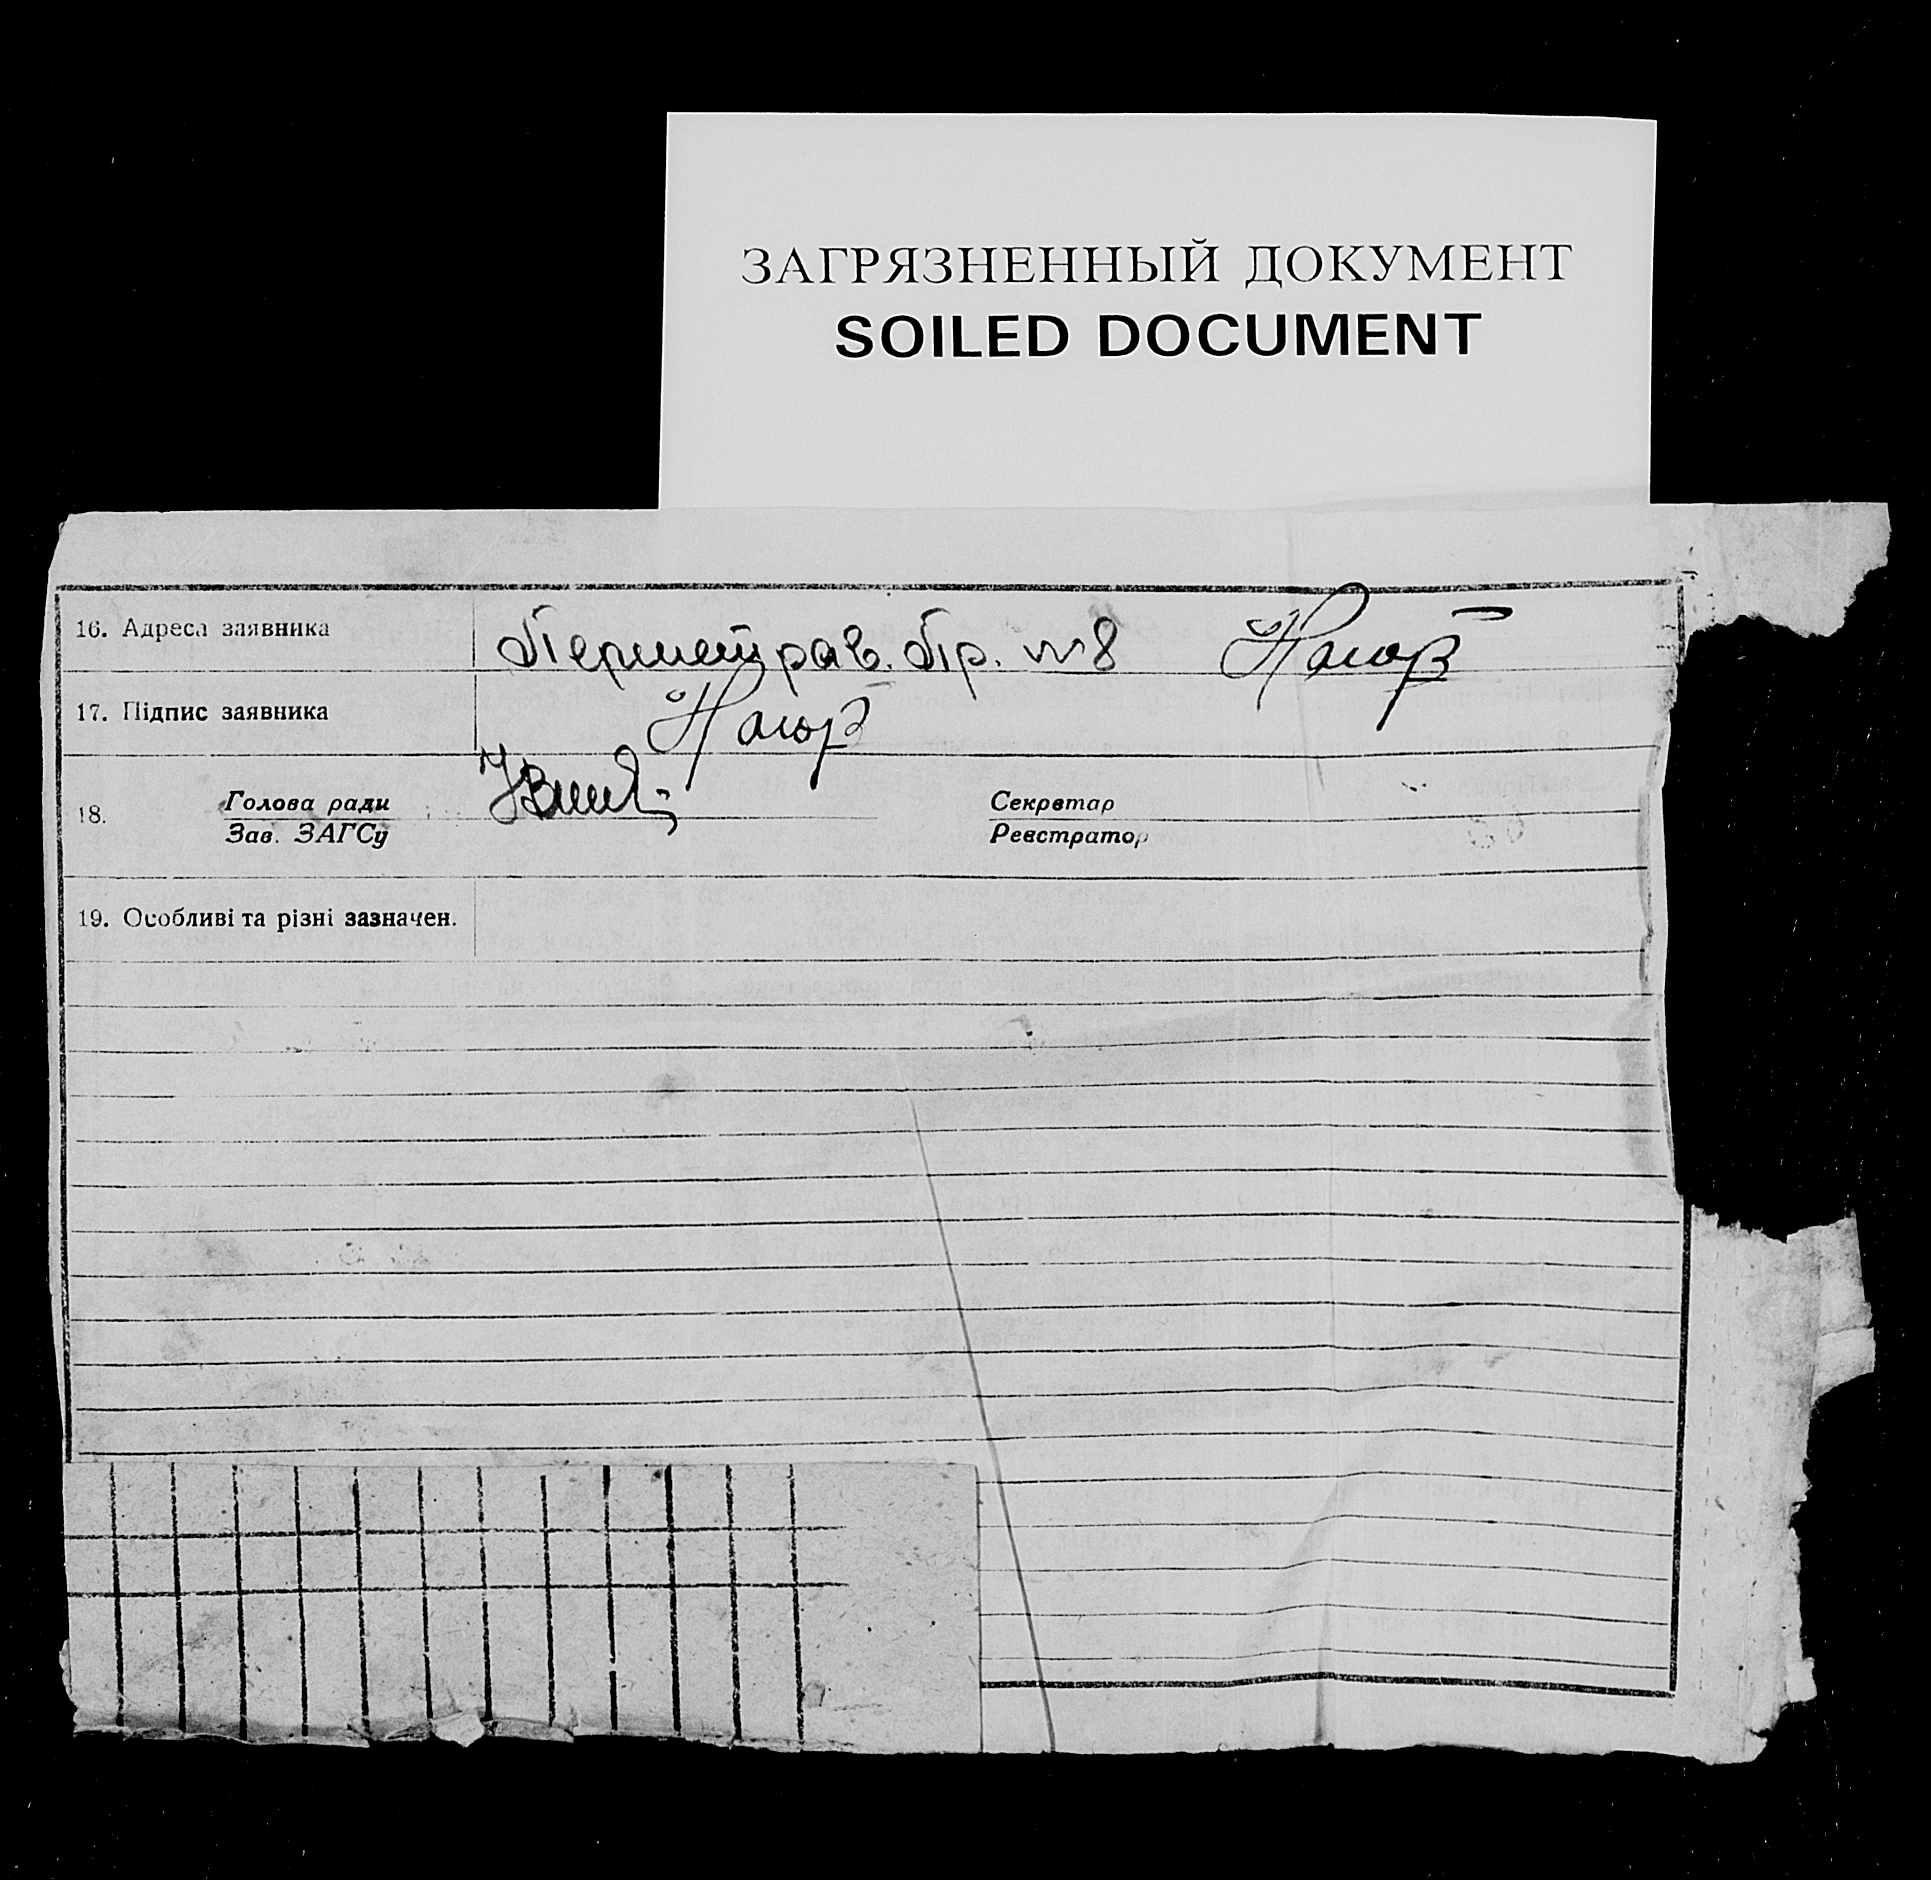 ЗАГРЯЗНЕННЫЙ ДОКУМЕНТ
SOILED DOCUMENT
16. Адреса заявника
пр. № 8
17. Підпис заявника
18. Голова ради
Зав. ЗАГСу
Секретар
Реєстратор
19. Особливі та різні зазначен.